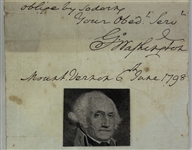 oblige by Sodoing
Your Obedt Servt
Go Washington
Mount Vernon 6th June 1798